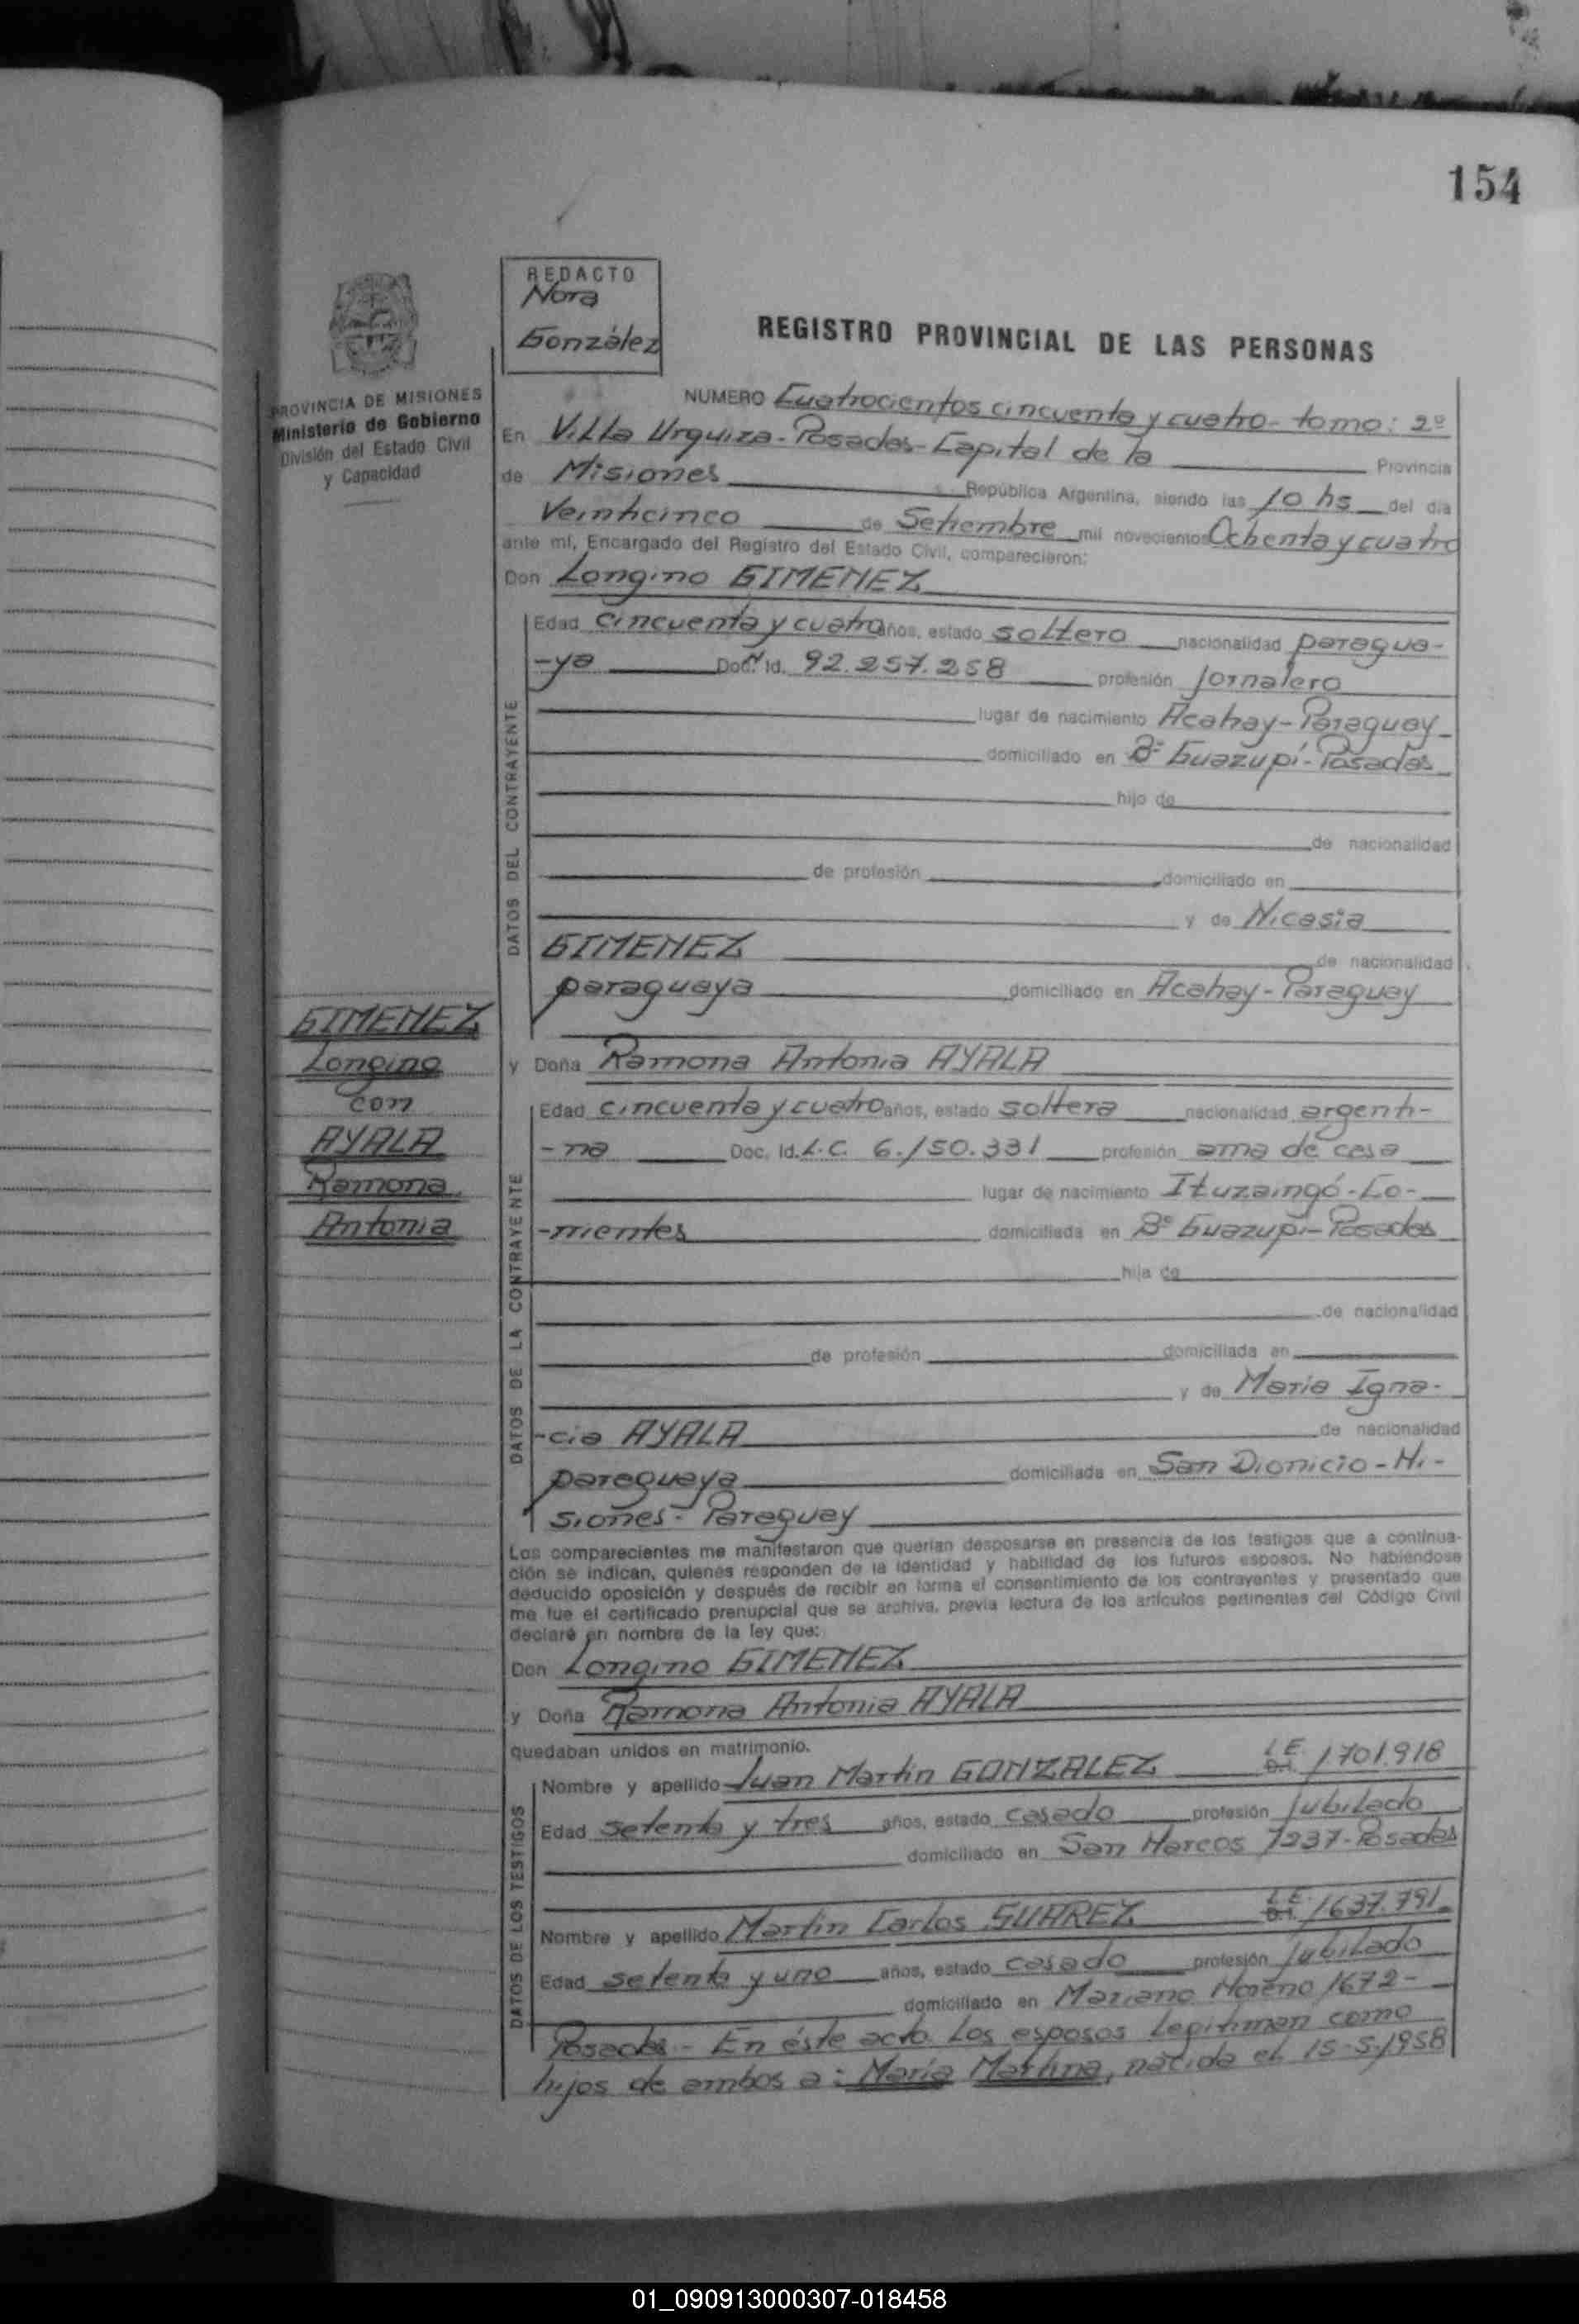 154
REDACTO
Nora
González
REGISTRO PROVINCIAL DE LAS PERSONAS
PROVINCIA DE MISIONES
Ministerio de Gobierno
División del Estado Civil
y Capacidad
NUMERO Cuatrocientos cincuenta y cuatro - tomo: 2º
En Villa Urquiza - Posadas - Capital de la Provincia
de Misiones República Argentina, siendo las 10 hs del día
Veinticinco de Setiembre mil novecientos Ochenta y cuatro
ante mí, Encargado del Registro del Estado Civil, comparecieron:
Don Longino GIMENEZ
DATOS DEL CONTRAYENTE
Edad cincuenta y cuatro años, estado soltero nacionalidad paragua-
-ya Doc. Id. 92.257.258 profesión jornalero
lugar de nacimiento Acahay - Paraguay
domiciliado en Bº Guazupí - Posadas
hijo de
de nacionalidad
de profesión domiciliado en
y de Nicasia
GIMENEZ de nacionalidad
paraguaya domiciliado en Acahay - Paraguay
GIMENEZ
Longino
con
AYALA
Ramona
Antonia
y Doña Ramona Antonia AYALA
DATOS DE LA CONTRAYENTE
Edad cincuenta y cuatro años, estado soltera nacionalidad argenti-
-na Doc. Id. L.C. 6.150.331 profesión ama de casa
lugar de nacimiento Ituzaingó - Co-
-rrientes domiciliada en Bº Guazupí - Posadas
hija de
de nacionalidad
de profesión domiciliada en
y de María Igna-
-cia AYALA de nacionalidad
paraguaya domiciliada en San Dionicio - Mi-
siones - Paraguay
Los comparecientes me manifestaron que querían desposarse en presencia de los testigos que a continua-
ción se indican, quienes responden de la identidad y habilidad de los futuros esposos. No habiéndose
deducido oposición y después de recibir en forma el consentimiento de los contrayentes y presentado que
me fue el certificado prenupcial que se archiva, previa lectura de los artículos pertinentes del Código Civil
declaré en nombre de la ley que:
Don Longino GIMENEZ
y Doña Ramona Antonia AYALA
quedaban unidos en matrimonio.
DATOS DE LOS TESTIGOS
Nombre y apellido Juan Martin GONZALEZ L.E. D.I. 1.701.918
Edad setenta y tres años, estado casado profesión jubilado
domiciliado en San Marcos 7237 - Posadas
Nombre y apellido Martin Carlos SUAREZ L.E. D.I. 1.637.791
Edad setenta y uno años, estado casado profesión jubilado
domiciliado en Mariano Moreno 1672 -
Posadas - En éste acto los esposos legitiman como
hijos de ambos a: María Martina, nacida el 15-5-1958
01_090913000307-018458